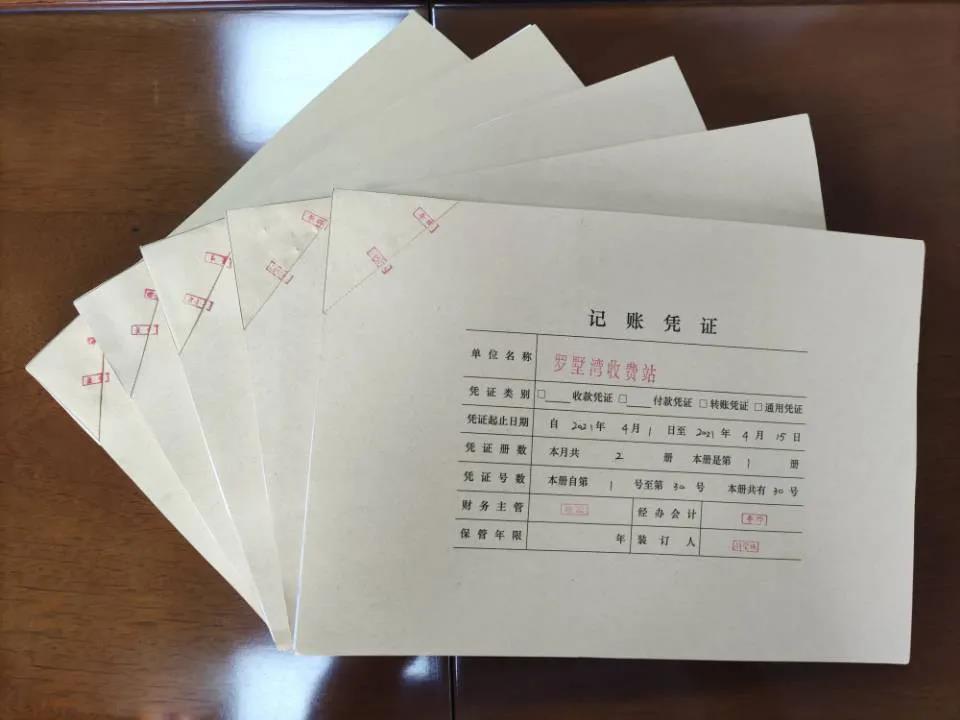 记账凭证
单位名称 罗墅湾收费站
凭证类别 □____收款凭证 □____付款凭证 □转账凭证 □通用凭证
凭证起止日期 自 2021年 4月 1 日至 2021年 4月 15日
凭证册数 本月共 2 册 本册是第 1 册
凭证号数 本册自第 1 号至第 30 号 本册共有 30 号
财务主管 经办会计
保管年限 年 装订人